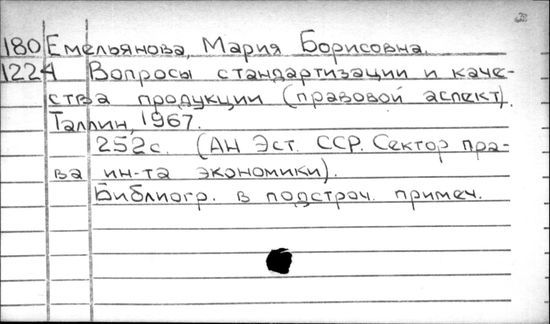 180 Емельянова, Мария Борисовна.
1224 Вопросы стандартизации и каче-
ства продукции (правовой аспект).
Таллин, 1967.
252с. (АН Эст. ССР. Сектор пра-
ва ин-та экономики).
Библиогр. в подстроч. примеч.